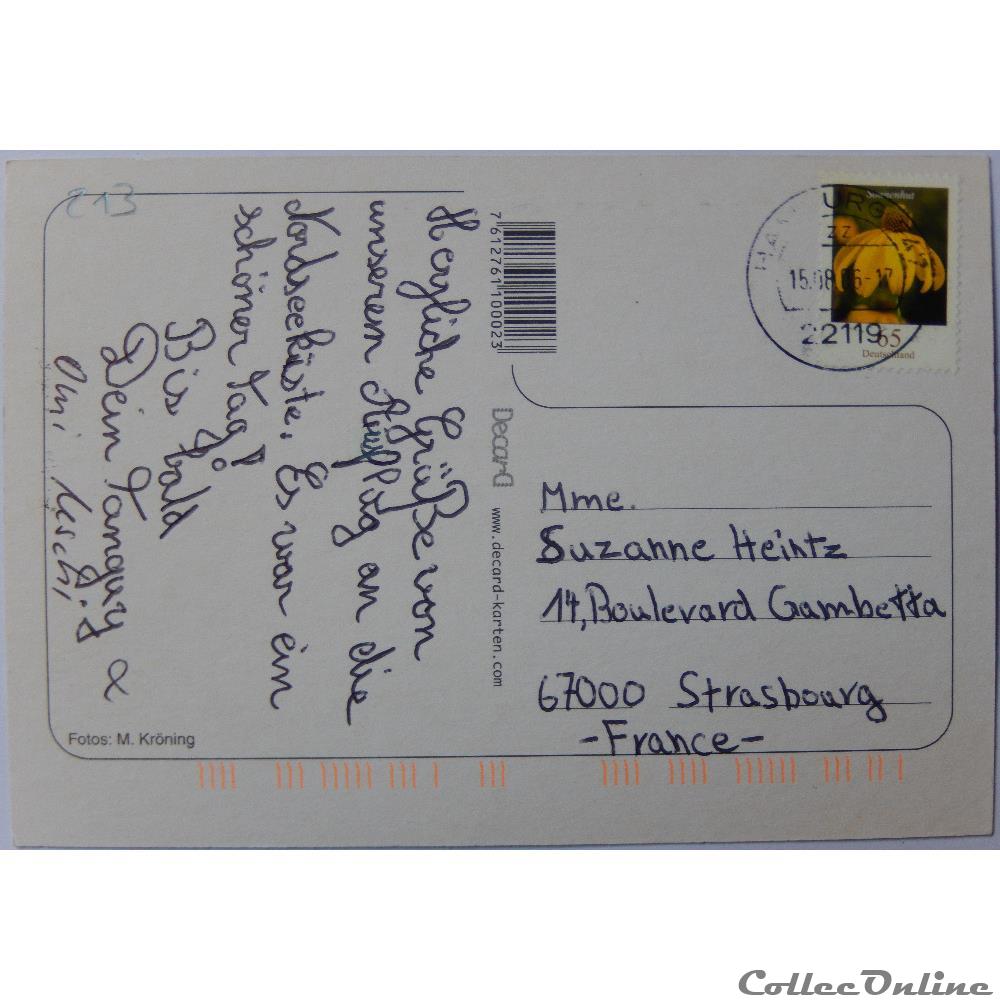 213
Herzliche Grüße von
unserem Ausflug an die
Nordseeküste. Es war ein
schöner Tag!
Bis bald
Dein Tanguy &
Omi
Fotos: M. Kröning
7 612761 100023
DecarD
www.decard-karten.com
Sonnenhut
65
Deutschland
HAMBURG
zz
15.08.06-17
22119
Mme.
Suzanne Heintz
14, Boulevard Gambetta
67000 Strasbourg
-France-
CollecOnline